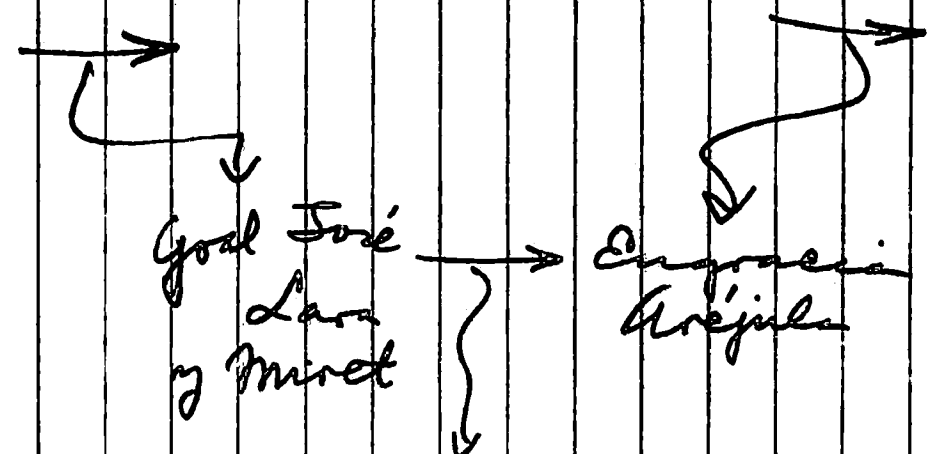 Gral José
Lara
y Miret
Engracia
Aréjula